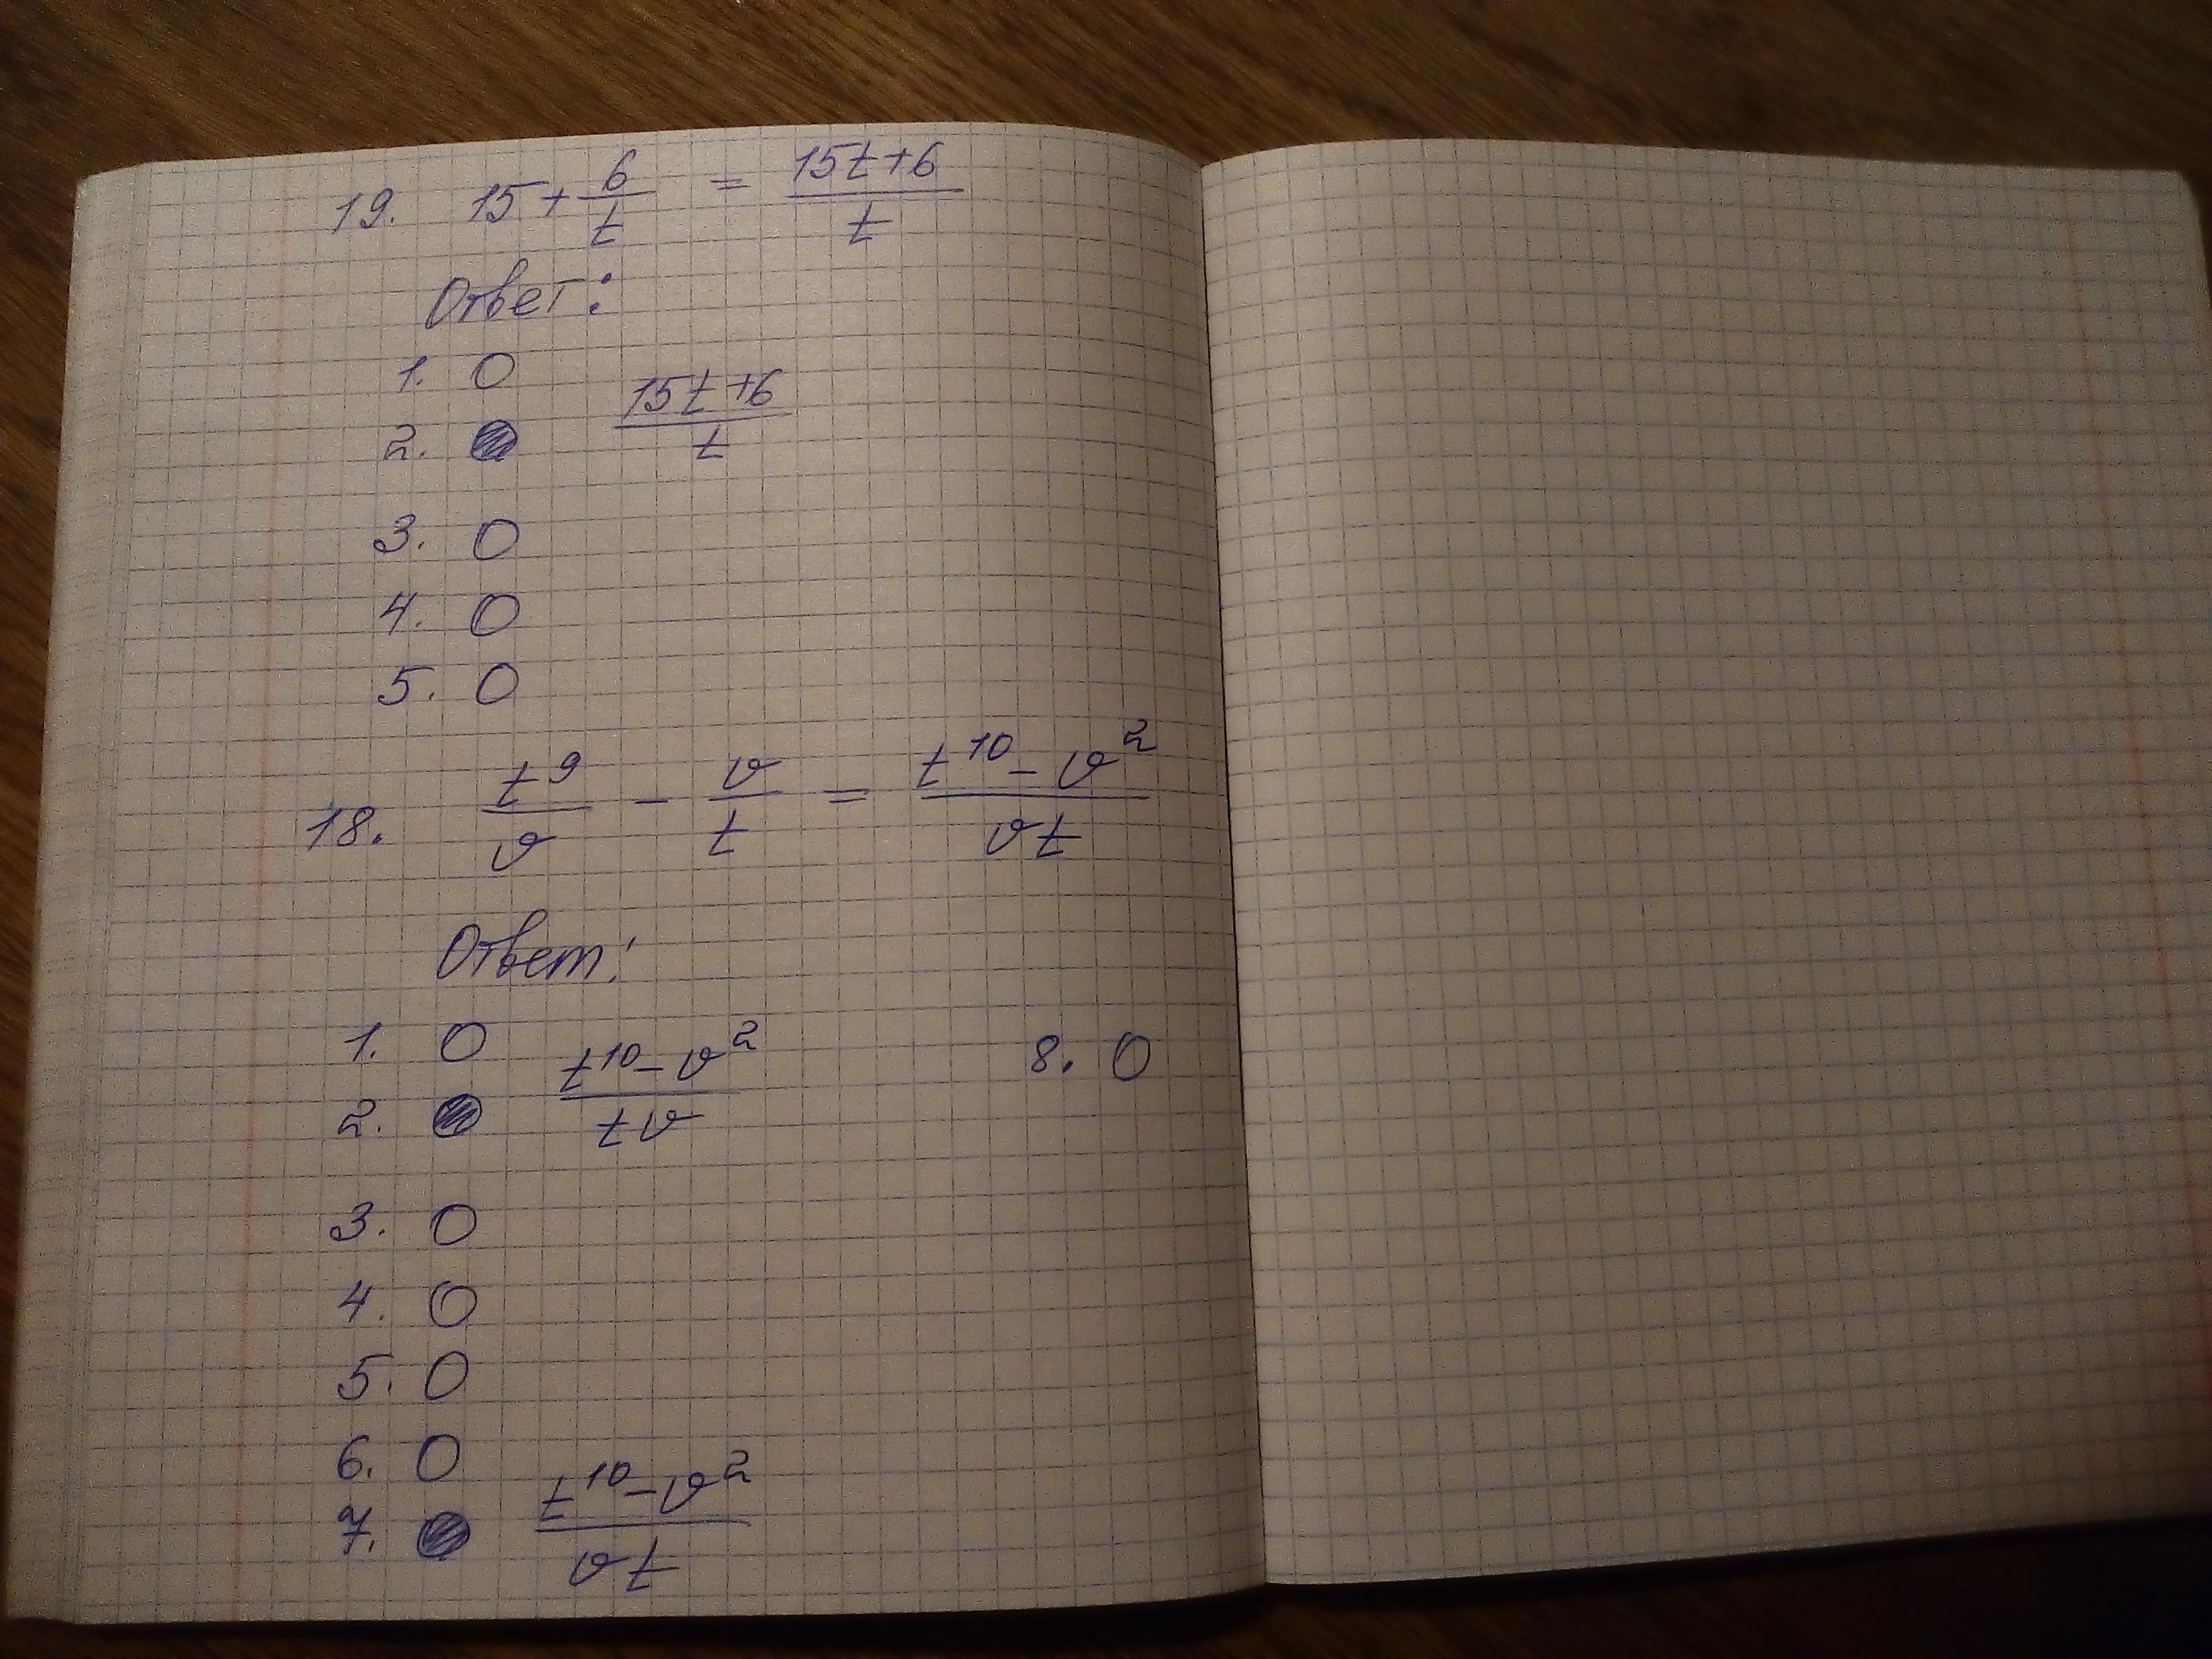 19. 15 + 6/t = (15t+6)/t
Ответ:
1. O
2. ● (15t+6)/t
3. O
4. O
5. O
18. t⁹/v - v/t = (t¹⁰-v²)/(vt)
Ответ:
1. O 8. O
2. ● (t¹⁰-v²)/(tv)
3. O
4. O
5. O
6. O
7. ● (t¹⁰-v²)/(vt)